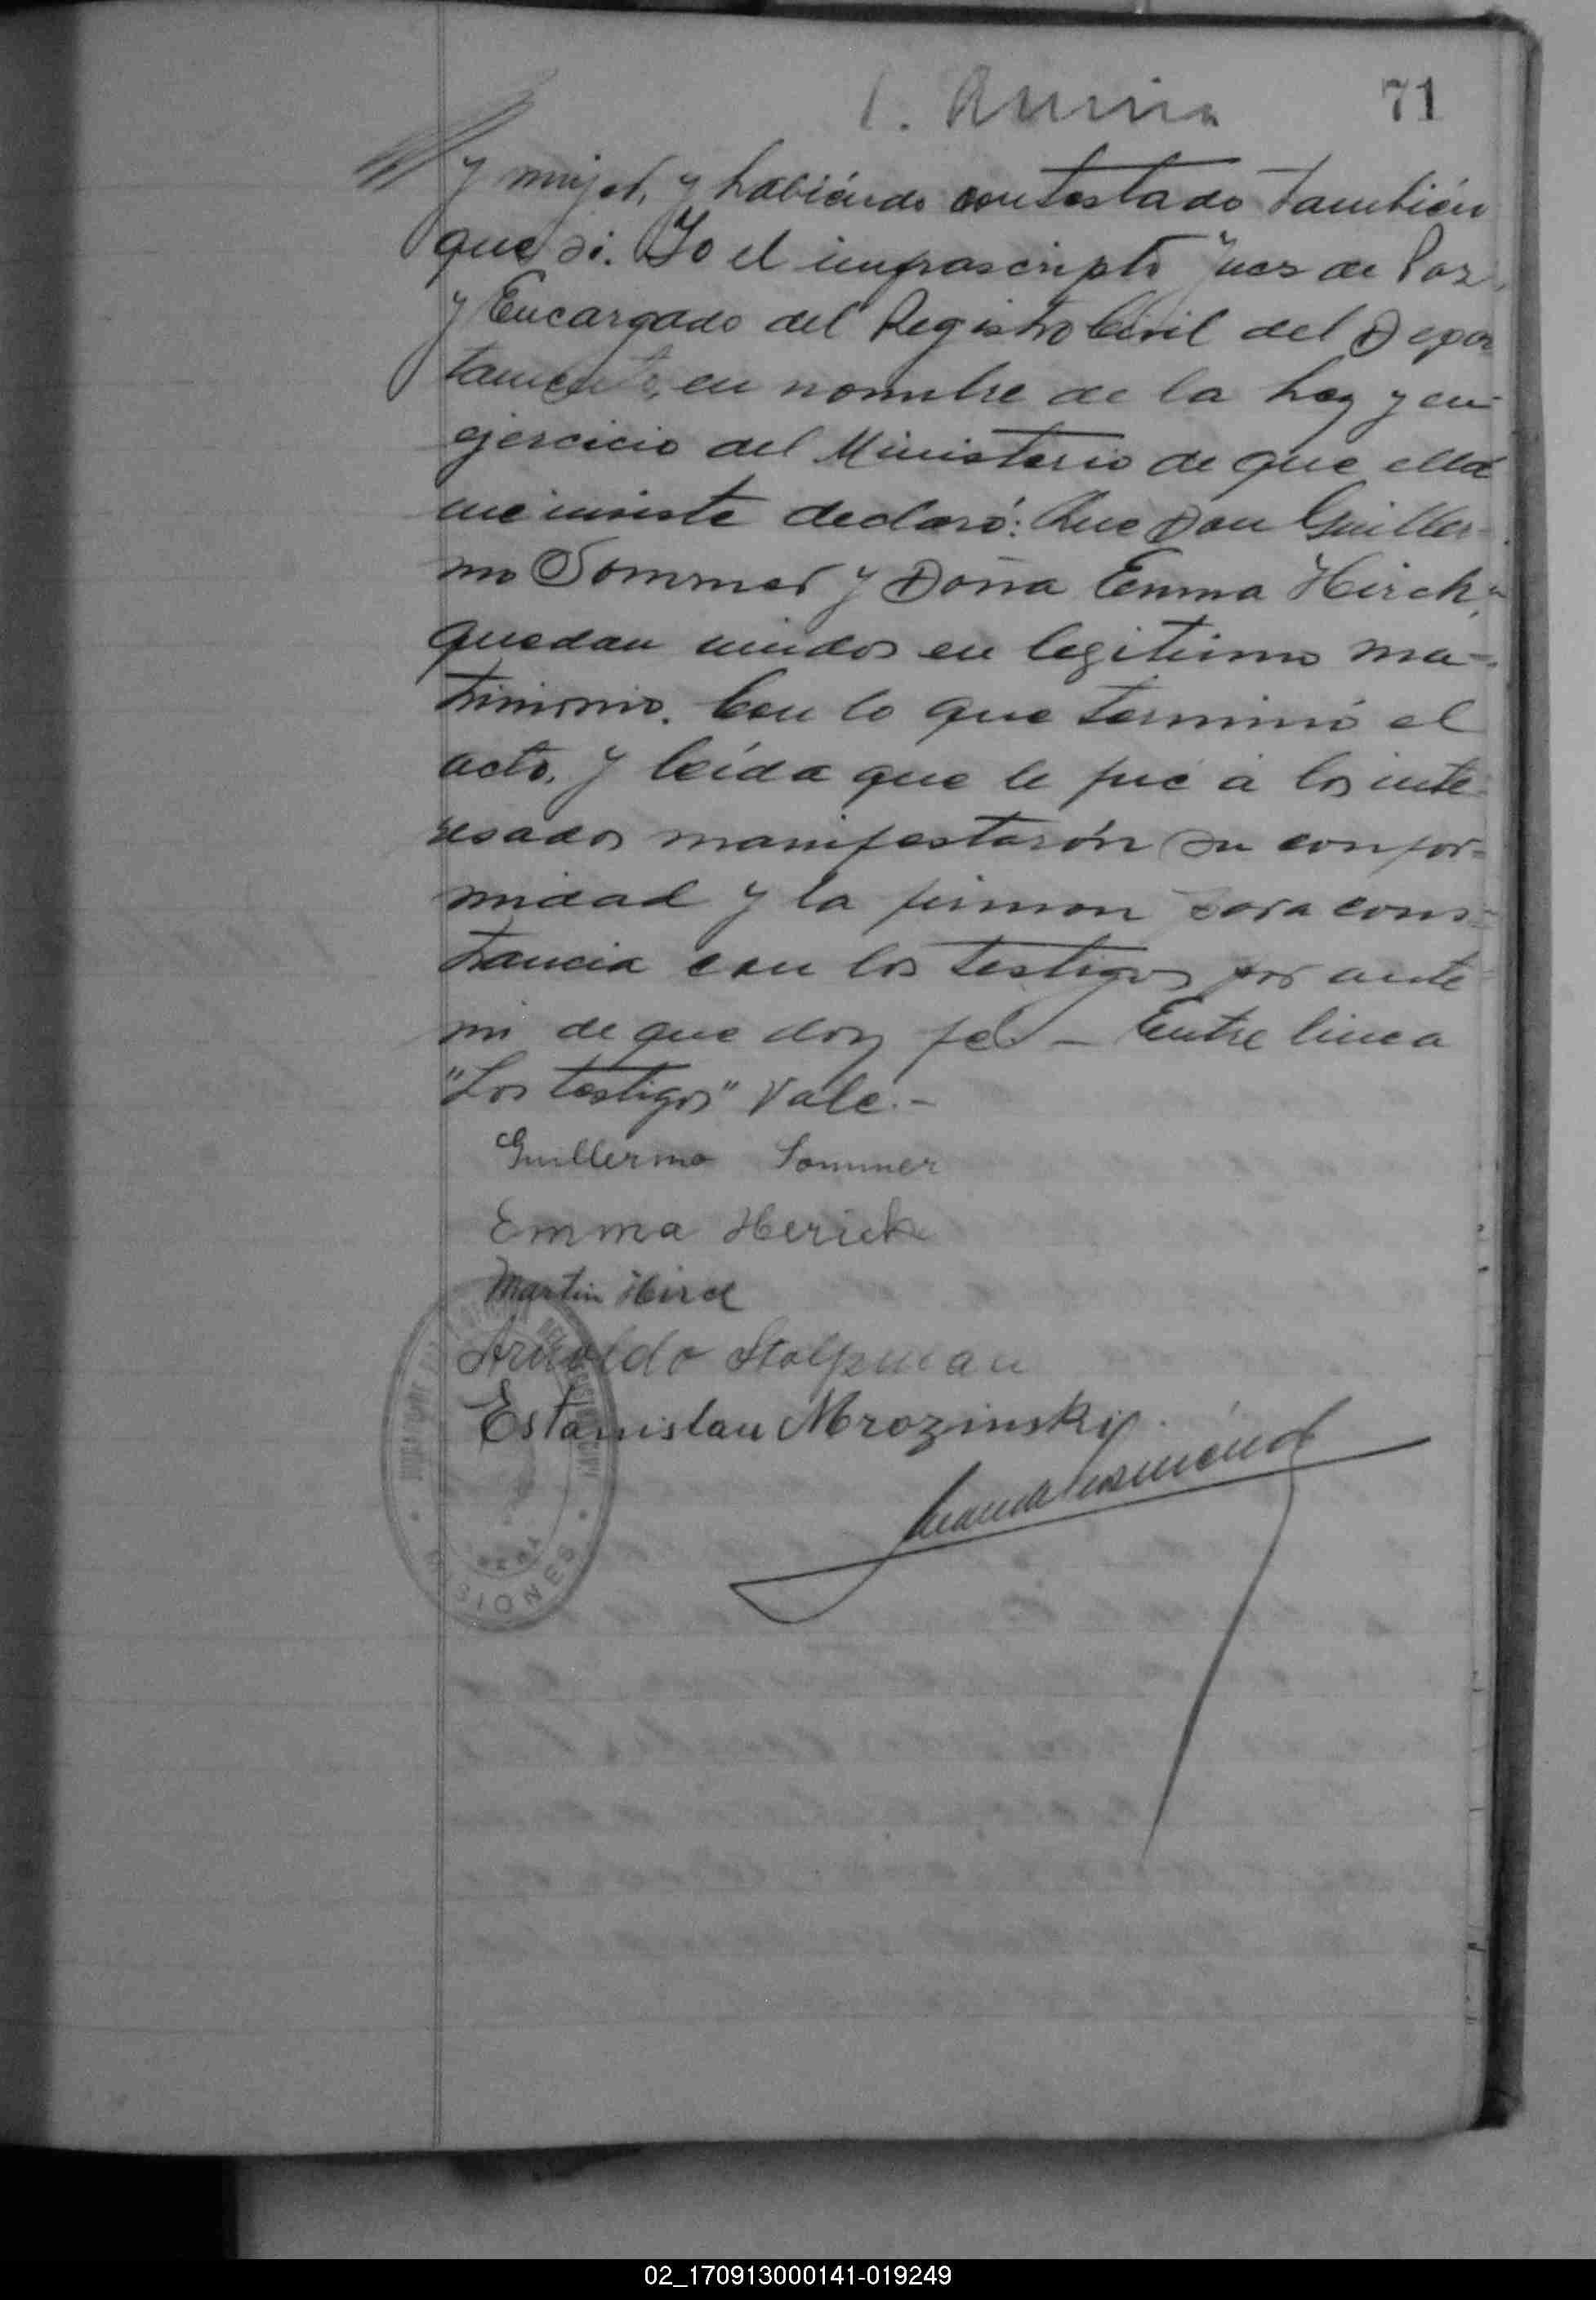 71
y mujer, y habiéndo contestado también
que si. Yo el imfrascripto Juez de Paz,
y Encargado del Registro Civil del Depar
tamento, en nombre de la Ley y en
ejercicio del Ministerio de que ella
me inviste declaró: Que Don Guiller-
mo Sommer y Doña Emma Hirch,
quedan unidos en legitimo ma-
trimonio. Con lo que terminó el
acto, y leída que le fué á los inte
resados manifestarón su confor-
midad y la firman para cons-
tancia con los testigos por ante
mi de que doy fé. - Entre linea
"Los testigos" Vale. -
Guillermo Sommer
Emma Herick
Martin
Arnoldo Stolpman
Estanislau Mrozinski
MISIONES
02_170913000141-019249